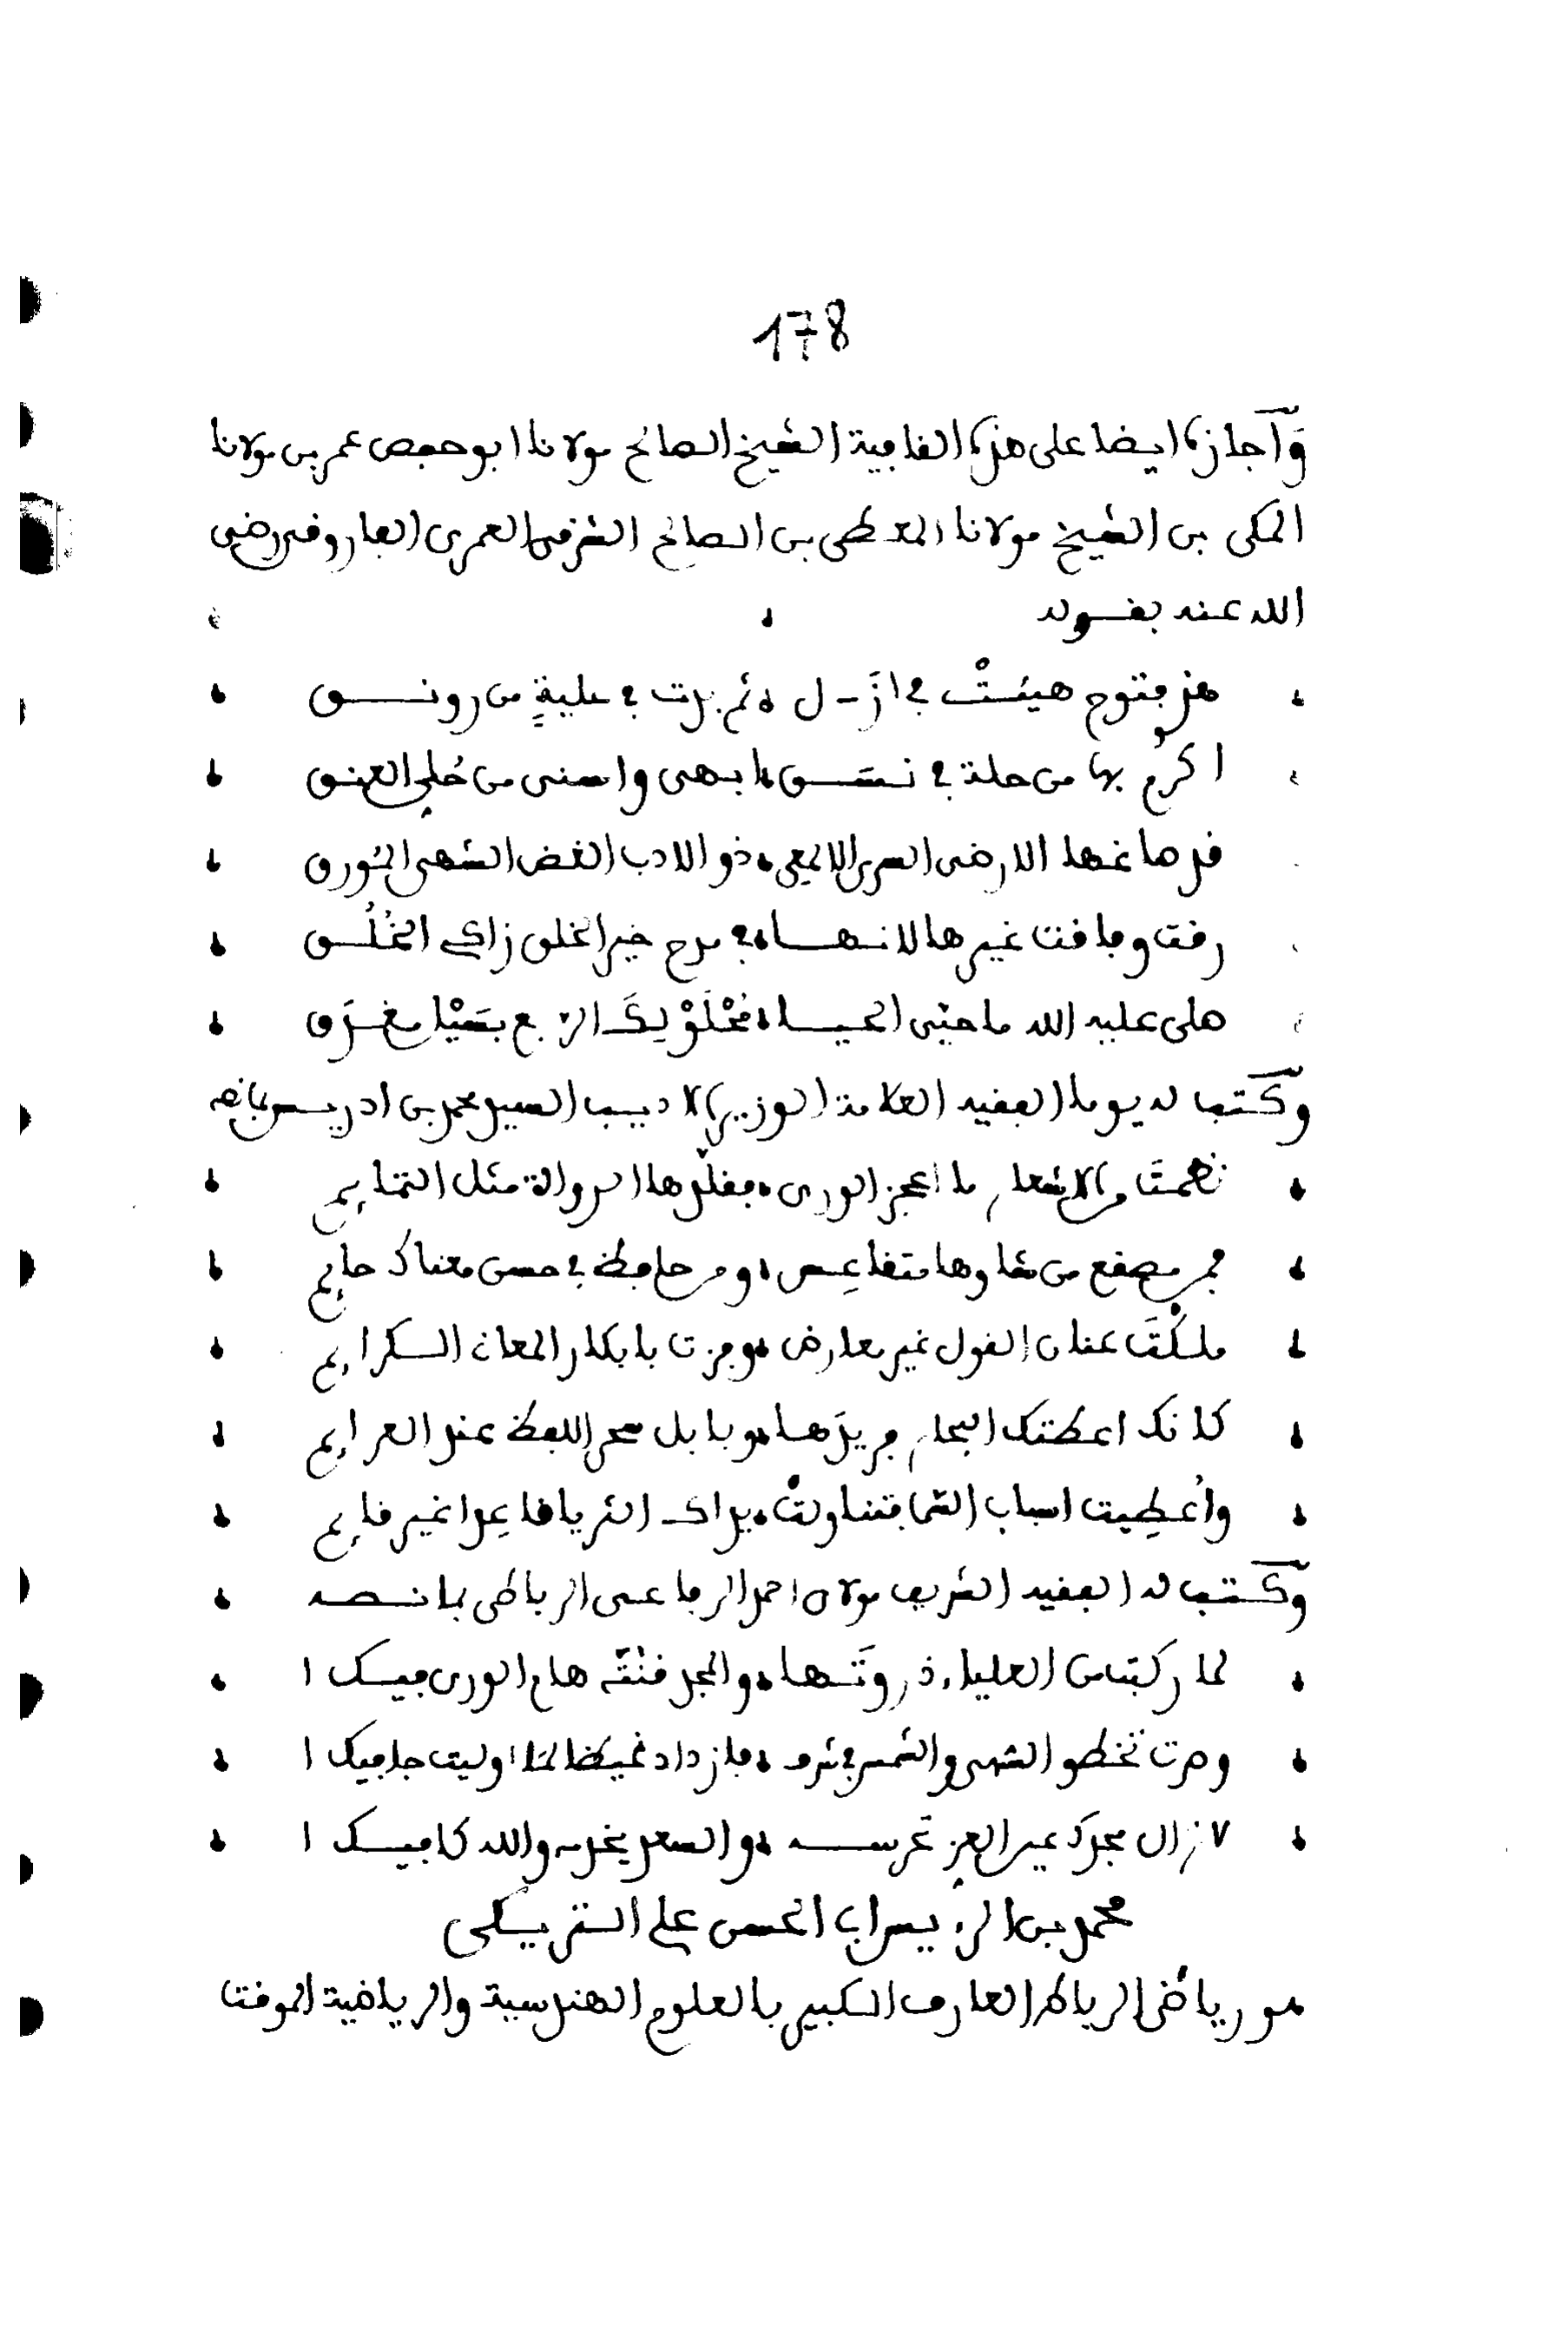 178
وأجازه ايضا على هذه القافية الشيخ الصالح مولانا ابو حفص عمر بن مولانا
المكي بن الشيخ مولانا المعطى بن الصالح الشرقي العمري الفاروقي رضي
الله عنه بقوله
هذي فتوح هيئتْ في ازَل ثم بدت في حليةٍ من رونق
اكرم بها من حلة في نسق ابهى واسنى من حُلي العنق
قد صاغها الارضى السري الالمعي ذو الادب الغض الشهي المورق
رقت وفاقت غيرها لانها في مدح خير الخلق زاكي الخُلُق
صلى عليه الله ما حيّى الحيا الربع مغدق
وكتب له يوما الفقيه العلامة الوزير الاديب السيد محمد بن ادريس بما نصه
نظمتَ من الاشعار ما اعجز الورى فقلدها الرواة مثل التمايم
فمن مصقع عن شاوها متقاعِس ومن حافظ في حسن معناك حايم
ملكْتَ عنان القول غير معارض وفزت بابكار المعاني الكرايم
كانك اعطتك البحار فريدَها وبابل سحر اللفظ عند العرايم
واُعطِيت اسباب السما فتناولتْ يداك الثريا قاعِدا غير قايم
وكتب له الفقيه الشريف مولاي احمد الرفاعي الرباطي بما نصه
لما ركبت من العلياء ذروتَها والمجد هام الورى فيكا
وصرت تخطو الشهب والشمس في شرف فازداد غيظا لما اوليت جافيكا
لا زال مجدك عين العز تحرسه والسعد يخدمه والله كافيكا
محمد بن الرئيس ابي الحسن علي التريكي
هو رياضي الرباط العارف الكبير بالعلوم الهندسية والرياضية الموقت